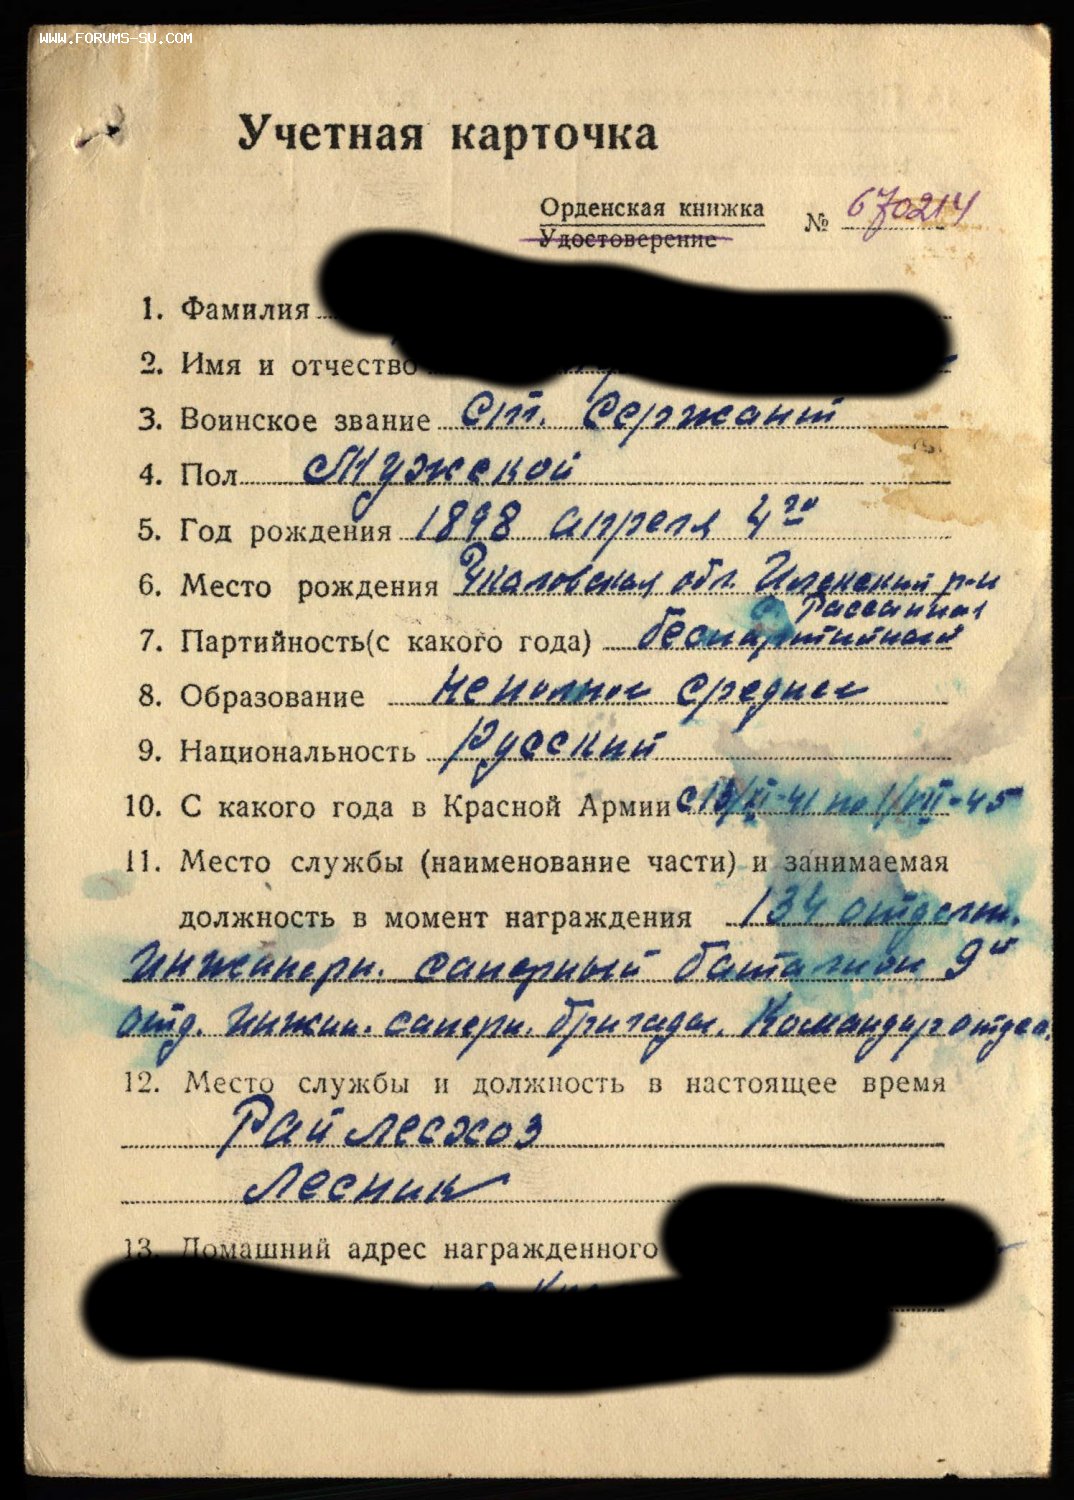 WWW.FORUMS-SU.COM
Учетная карточка
Орденская книжка
Удостоверение
№ 670214
1. Фамилия
2. Имя и отчество
3. Воинское звание Ст. Сержант
4. Пол Мужской
5. Год рождения 1898 апреля 4го
6. Место рождения Чкаловская обл. Илекский р-н
с. Рассыпная
7. Партийность(с какого года) беспартийный
8. Образование неполное среднее
9. Национальность русский
10. С какого года в Красной Армии
11. Место службы (наименование части) и занимаемая
должность в момент награждения 134 отдельн.
Инжинерн. саперный батальон 9й
отд. Инжин. саперн. бригады. Командир отдел.
12. Место службы и должность в настоящее время
Райлесхоз
Лесник
13. Домашний адрес награжденного